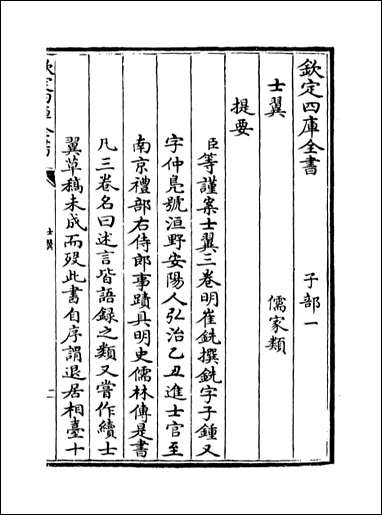 欽定四庫全書　子部一
士翼　儒家類
提要
臣等謹案士翼三卷明崔銑撰銑字子鍾又
字仲鳧號洹野安陽人弘治乙丑進士官至
南京禮部右侍郎事蹟具明史儒林傳是書
凡三卷名曰述言皆語録之類又嘗作續士
翼草稿未成而歿此書自序謂退居相臺十
欽定四庫全書
士翼